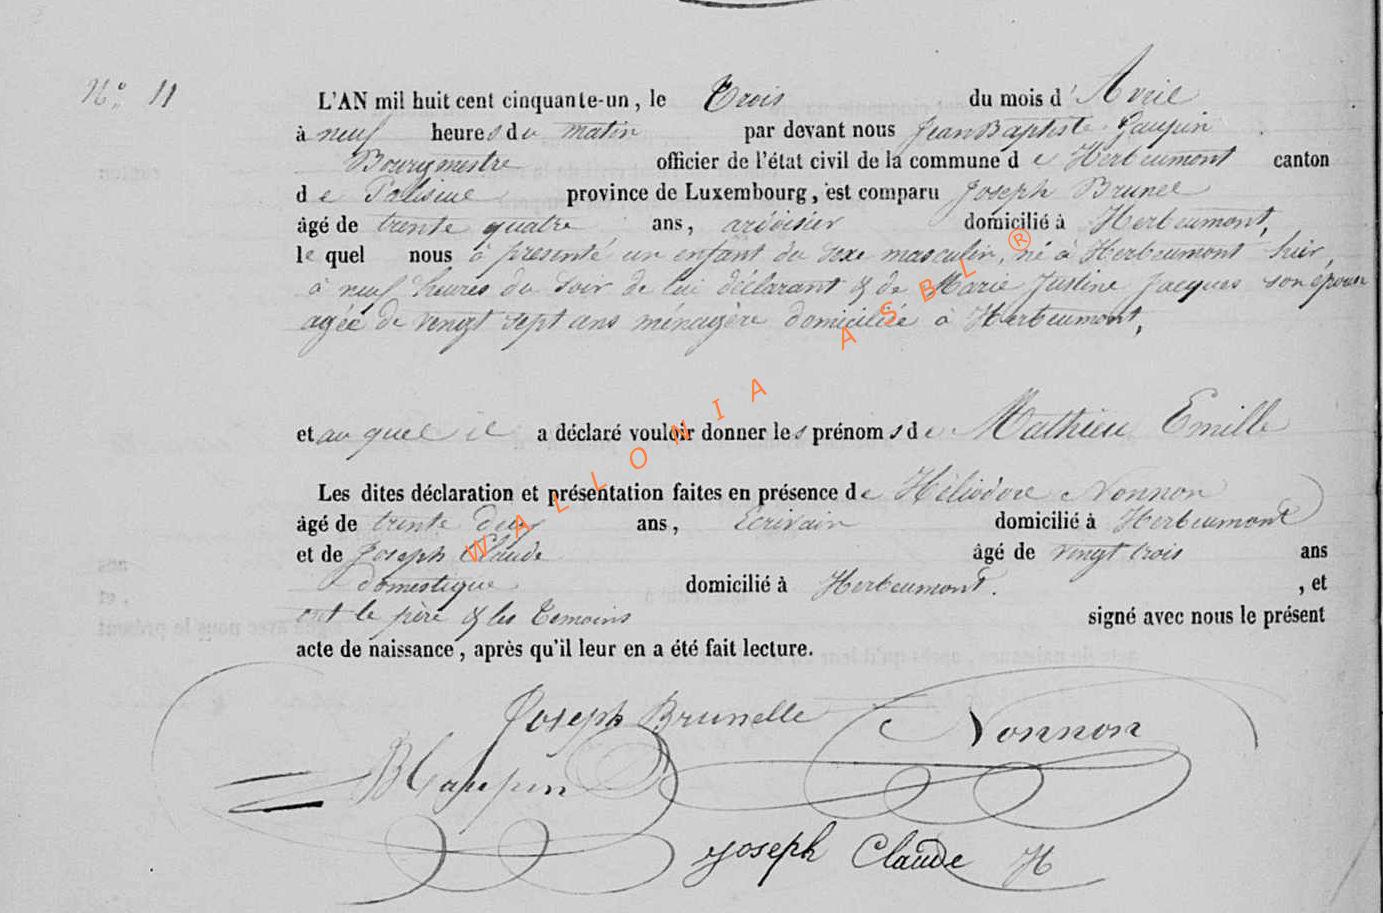 N° 11
L'AN mil huit cent cinquante-un, le Trois du mois d'Avril
à neuf heures du matin par devant nous Jean Baptiste Gaupin
Bourgmestre officier de l'état civil de la commune de Herbeumont canton
de Paliseul province de Luxembourg, est comparu Joseph Brunel
âgé de trente quatre ans, ardoisier domicilié à Herbeumont,
le quel nous à présenté un enfant du sexe masculin, né à Herbeumont hier,
à neuf heures du soir de lui déclarant & de Marie Justine Jacques son épouse
agée de vengt sept ans ménagère domiciliée à Herbeumont,
et au quel il a déclaré vouloir donner les prénoms de Mathieu Emille
Les dites déclaration et présentation faites en présence de Héliodore Nonnon
âgé de trente deux ans, Ecrivain domicilié à Herbeumont
et de Joseph Claude âgé de vingt trois ans
domestique domicilié à Herbeumont. , et
ont le père & les temoins signé avec nous le présent
acte de naissance, après qu'il leur en a été fait lecture.
Joseph Brunelle Nonnon
Gaupin
Joseph Claude H
WALLONIA ASBL ®